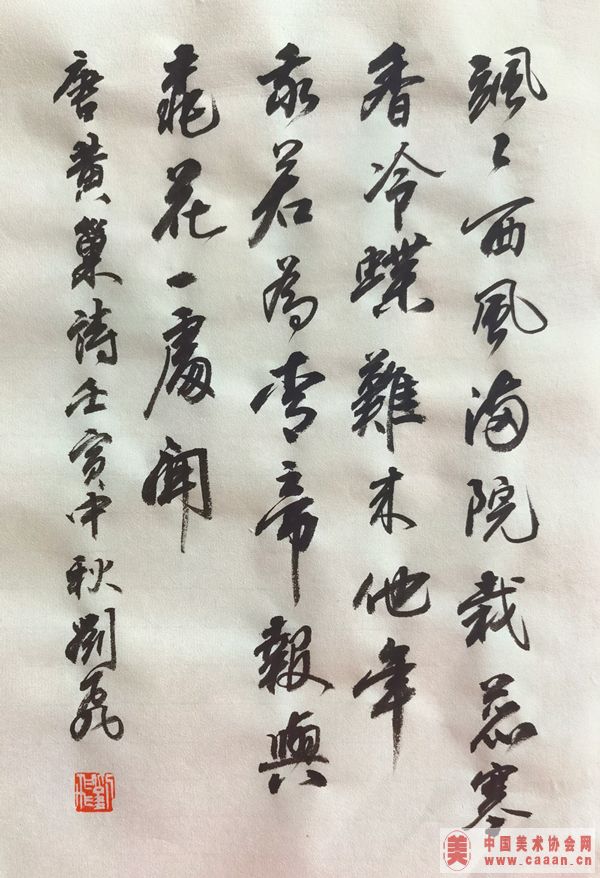 颯〻西風满院栽蕊寒
香冷蝶難来他年
我若為青帝報與
桃花一處開
唐黄巢詩壬寅中秋劉
中国美术协会网
www.caaan.cn
美